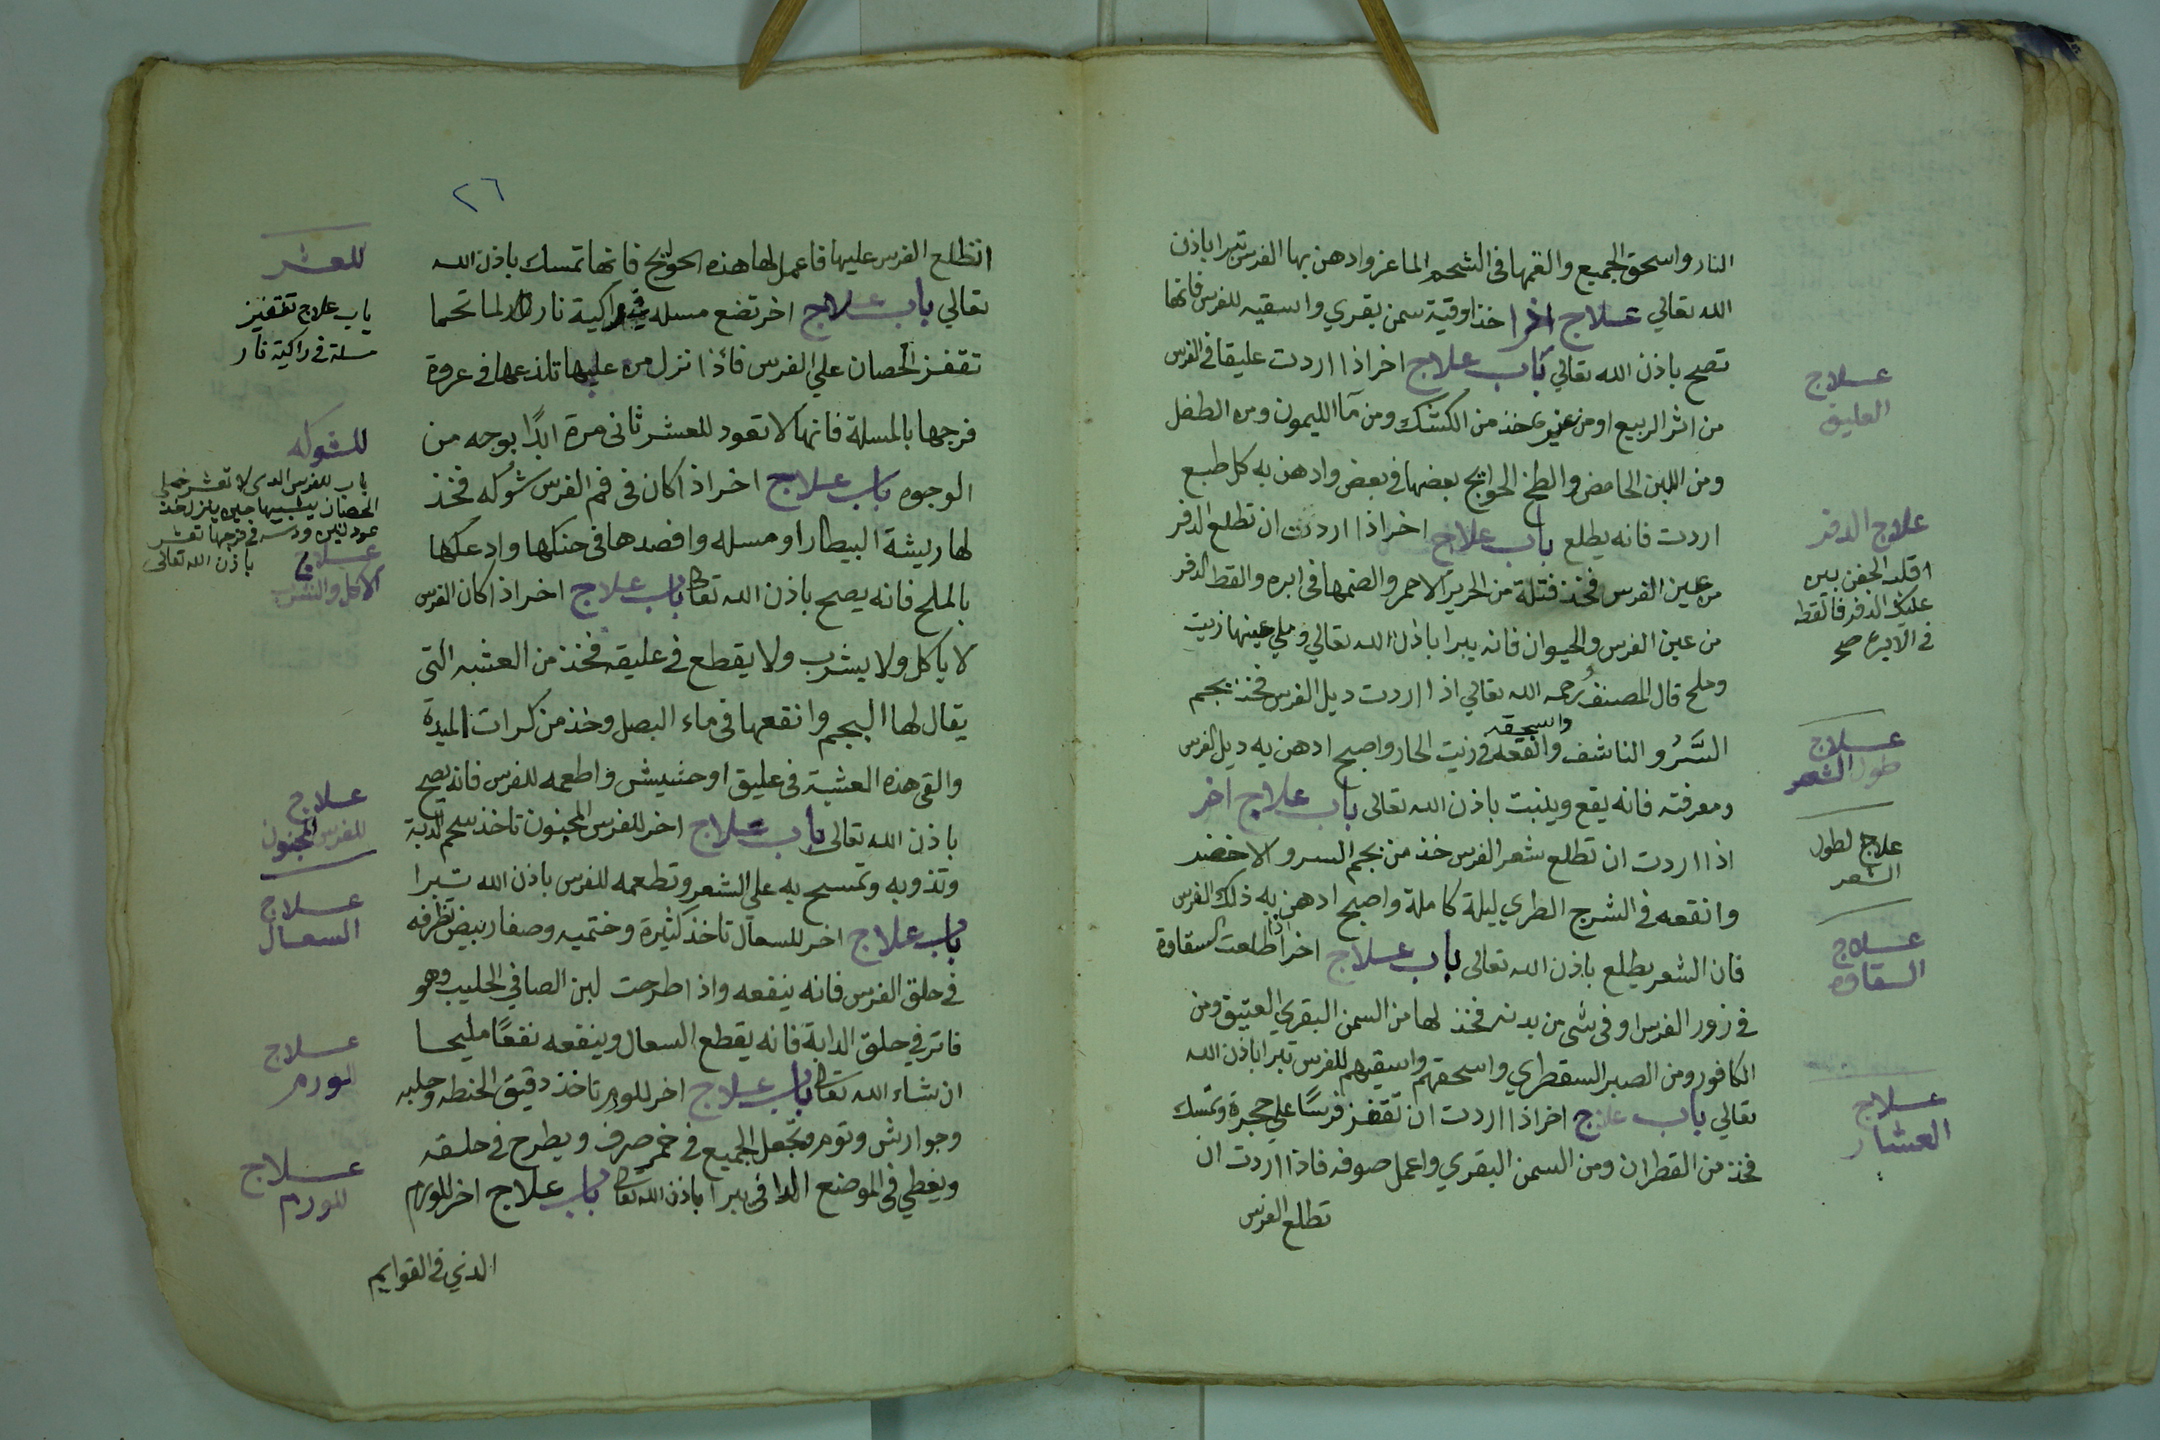 النار واسحق الجميع والقمها فى الشحم الماعز وادهن بها الفرس تبرا باذن
الله تعالي علاج اخر خذ اوقية سمن بقري واسقيه للفرس فانها
تصح باذن الله تعالي باب علاج اخر اذا اردت عليقا فى الفرس
من اثر الربيع او من غيره خذ من الكشك ومن مآ الليمون ومن الطفل
ومن اللبن الحامض والطخ الحوايج بعضها فى بعض وادهن به كل طبع
اردت فانه يطلع باب علاج اخر اذا اردت ان تطلع الدفر
من عين الفرس فخذ فتلة من الحرير الاحمر والضمها فى ابره والقط الدفر
من عين الفرس والحيوان فانه يبرا باذن الله تعالي وملي عينها زيت
وملح قال المصنف رحمه الله تعالي اذا اردت ديل الفرس فخذ بجم
السَّرُو الناشف واسحقه وانقعه فى زيت الحار واصبح ادهن به ديل الفرس
ومعرفته فانه يقع وينبت باذن الله تعالى باب علاج اخر
اذا اردت ان تطلع شعر الفرس خذ من بجم السرو الاخضر
وانقعه فى الشرج الطري ليلة كاملة واصبح ادهن به ذلك الفرس
فان الشعر يطلع باذن الله تعالى باب علاج اخر اذا طلعت السقاوة
فى زور الفرس او فى شى من بدنه فخذ لها من السمن البقري العتيق ومن
الكافور ومن الصبر السقطري واسحقهم واسقيهم للفرس تبرا باذن الله
تعالي باب علاج اخر اذا اردت ان تقفز فرسًا على حجرة وتمسك
فخذ من القطران ومن السمن البقري واعمل صوفه فاذا اردت ان
تطلع الفرس
علاج
العليق
علاج الدفر
اقلب الجفن يبره
عليك الدفر فالقطه
فى الابره صح
علاج
طول الشعر
علاج لطول
الشعر
علاج
السقاوه
علاج
العشار
٢٦
انظلع الفرس عليها فاعمل لها هذه الحوايج فانها تمسك باذن الله
تعالي باب علاج اخر تضع مسله فى راكية نار لما تحما
تقفز الحصان علي الفرس فاذا نزل من عليها تلذعها فى عروة
فرجها بالمسلة فانها لا تعود للعشر ثانى مرة ابدًا بوجه من
الوجوه باب علاج اخر اذا كان فى فم الفرس شوكه فخذ
لها ريشة البيطار او مسله وافصدها فى حنكها وادعكها
بالملح فانه يصح باذن الله تعالى باب علاج اخر اذا كان الفرس
لا ياكل ولا يشرب ولا يقطع فى عليقه فخذ من العشبه التى
يقال لها البجم وانقعها فى ماء البصل وخذ من كرات الميدة
والقى هذه العشبة فى عليق او حشيش واطعمه للفرس فانه يصح
باذن الله تعالى باب علاج اخر للفرس المجنون تاخذ شحم الدبة
وتذوبه وتمسح به على الشعر وتطعمه للفرس باذن الله تبرا
باب علاج اخر للسعال تاخذ كثيرة وختميه وصفار بيض تطرفه
فى حلق الفرس فانه ينفعه واذا طرحت لبن الصافى الحليب وهو
فاتر فى حلق الدابة فانه يقطع السعال وينفعه نفعًا مليحا
ان شاء الله تعالى باب علاج اخر للورم تاخذ دقيق الحنطه وحلبه
وجوارش وتوم وتجعل الجميع فى خمر صرف ويطرح فى حلقه
ويغطي فى الموضع الدافى يبرا باذن الله تعالى باب علاج اخر للورم
الذي فى القوايم
للعشر
باب علاج تقفيز
مسلة فى راكية نار
للشوكه
باب للفرس الدى لا تعشر خلى
الحصان يشبيها حين ينزل خذ
عود تين ودسه فى فرجها تعشر
باذن الله تعالى
علاج
الاكل والشرب
علاج
للفرس المجنون
علاج
السعال
علاج
لورم
علاج
للورم